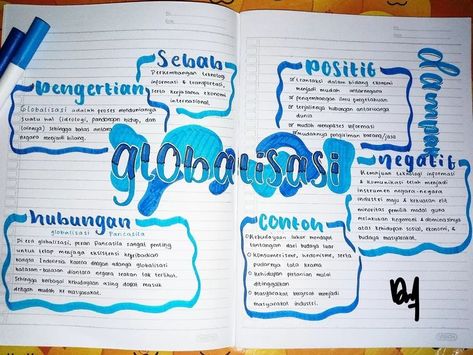 Sebab
Perkembangan teknologi
informasi & transportasi,
serta kerjasama ekonomi
internasional.
Pengertian
Globalisasi adalah proses mendunianya
suatu hal (ideologi, pandangan hidup, dan
lainnya) sehingga batas antara
negara menjadi hilang.
globalisasi
hubungan
globalisasi Pancasila
Di era globalisasi, peran Pancasila sangat penting
untuk tetap menjaga eksistensi kepribadian
bangsa Indonesia, karena dengan adanya globalisasi
batasan-batasan diantara negara seakan tak terlihat,
sehingga berbagai kebudayaan asing dapat masuk
dengan mudah ke masyarakat.
dampak
Positif
transaksi dalam bidang ekonomi
menjadi mudah antarnegara
pengembangan ilmu pengetahuan
terjalinnya hubungan antarwarga
dunia
mudah mengakses informasi
mudahnya pengiriman barang/jasa
negatif
Kemajuan teknologi informasi
& komunikasi telah menjadi
instrumen negara-negara
industri maju & kekuatan elit
minoritas pemilik modal guna
melakukan hegemoni & dominasinya
atas kehidupan sosial, ekonomi, &
budaya masyarakat.
Contoh
Kebudayaan lokal mendapat
tantangan dari budaya luar
Konsumerisme, hedonisme, serta
pudarnya tata krama
kehidupan pertanian mulai
ditinggalkan
Masyarakat bergeser menjadi
masyarakat industri.